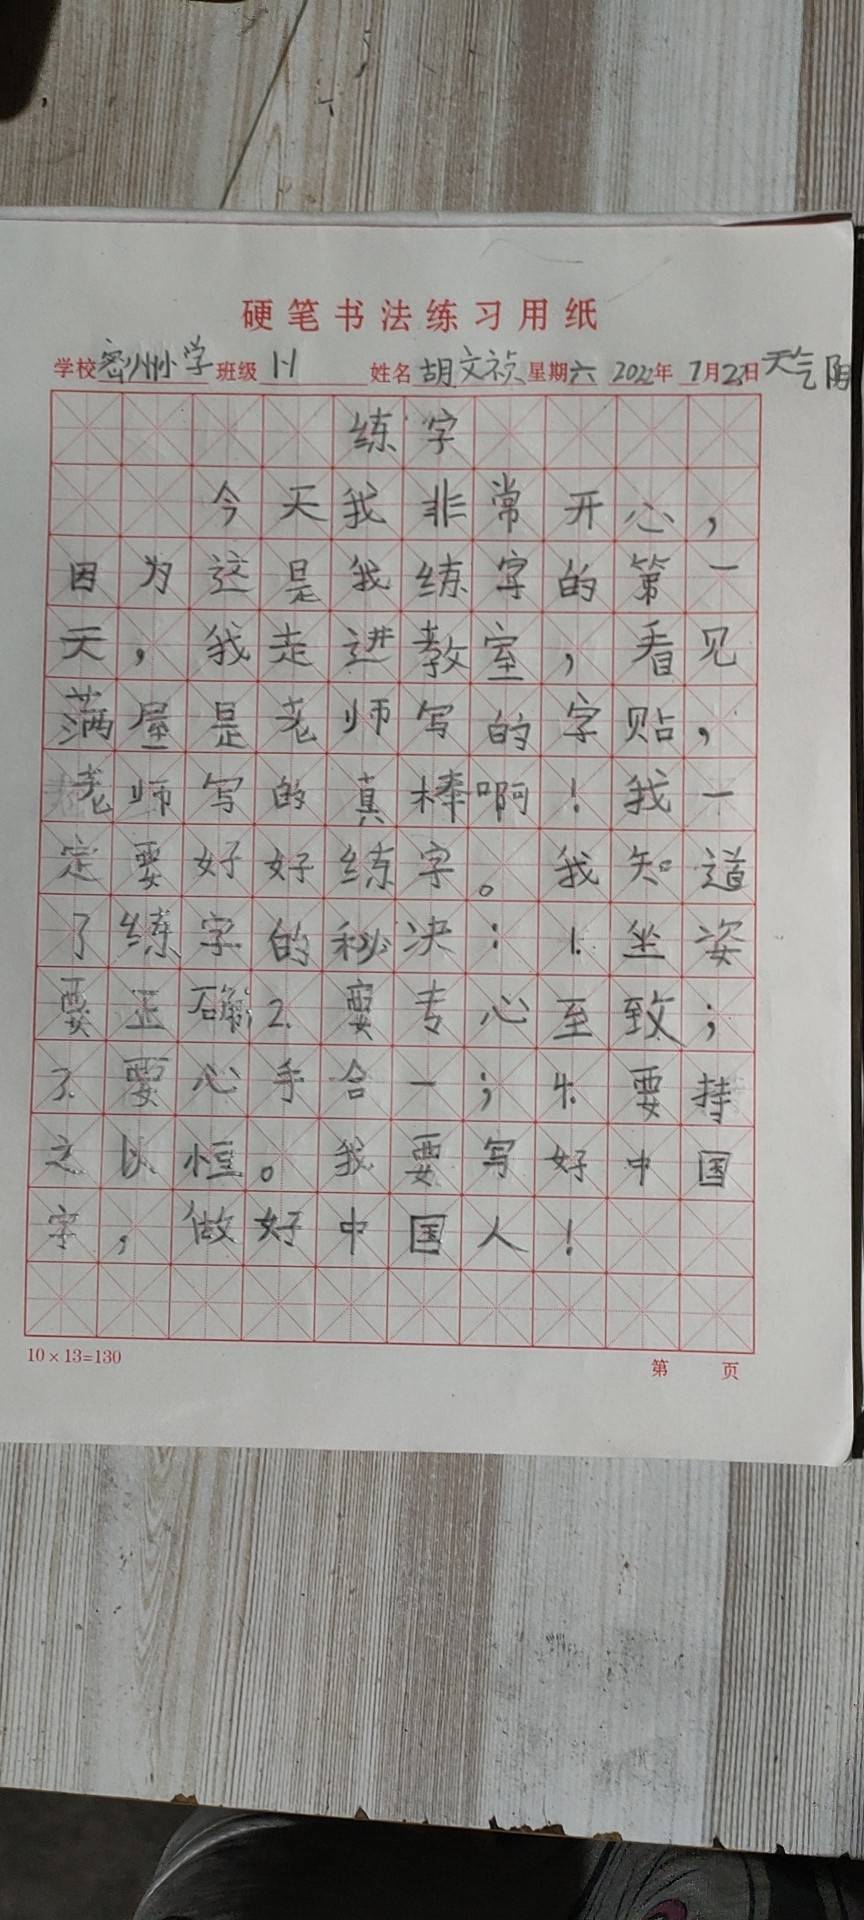 硬笔书法练习用纸
学校密州小学 班级1.1 姓名胡文祯 星期六 2022年 7月23日天气阴
练字
今天我非常开心，
因为这是我练字的第一
天，我走进教室，看见
满屋是老师写的字贴，
老师写的真棒啊！我一
定要好好练字。我知道
了练字的秘决：1.坐姿
要正确2.要专心至致；
3.要心手合一；4.要持
之以恒。我要写好中国
字，做好中国人！
10×13=130
第 页